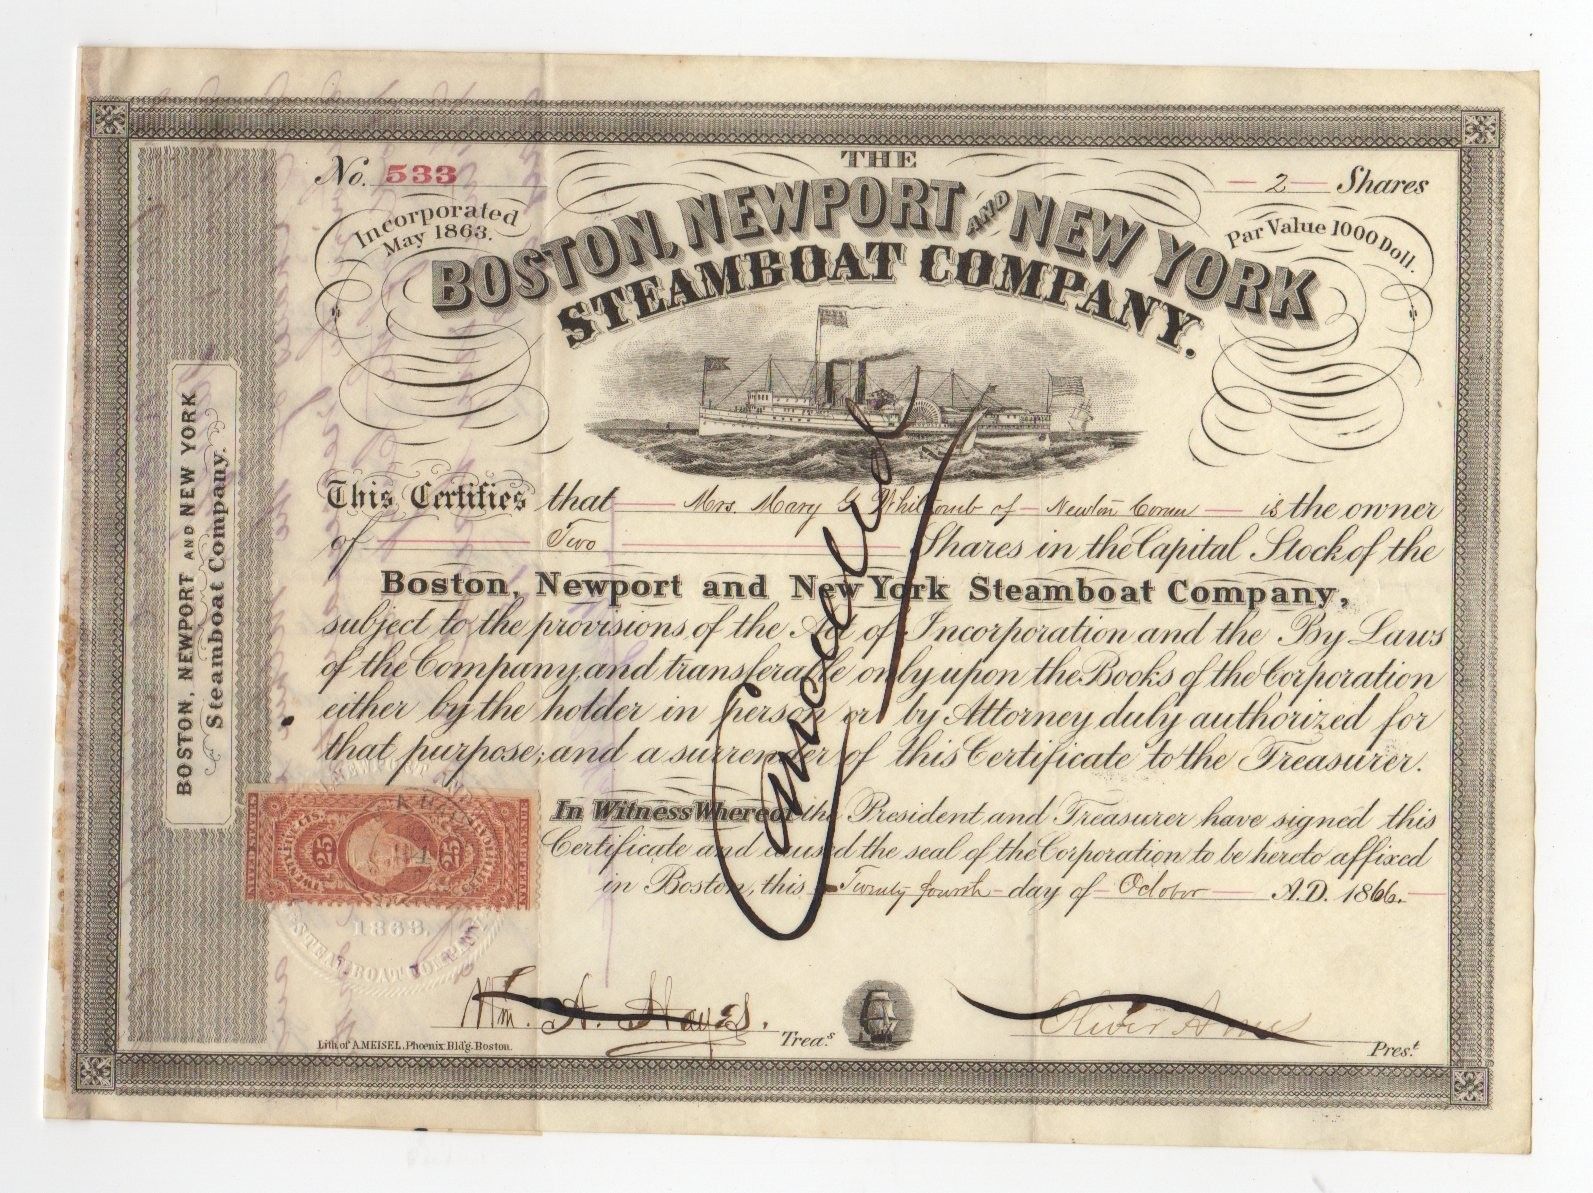 No. 533
THE
2 Shares
Incorporated
May 1863.
Par Value 1000 Doll.
BOSTON, NEWPORT AND NEW YORK
STEAMBOAT COMPANY.
This Certifies that Mrs. Mary G Whitcomb of Newton Corner is the owner
of Two Shares in the Capital Stock of the
Boston, Newport and New York Steamboat Company,
subject to the provisions of the Act of Incorporation and the By Laws
of the Company, and transferable only upon the Books of the Corporation
either by the holder in person or by Attorney duly authorized for
that purpose; and a surrender of this Certificate to the Treasurer.
In Witness Whereof the President and Treasurer have signed this
Certificate and caused the seal of the Corporation to be hereto affixed
in Boston, this Twenty fourth day of October A.D. 1866.
Cancelled
Wm. A. Hayes. Treas.
Oliver Ames Prest.
Lith. of A. MEISEL, Phoenix Bld'g. Boston.
BOSTON, NEWPORT AND NEW YORK
Steamboat Company.
UNITED STATES
TWENTY FIVE CTS.
25
25
INTER. REVENUE
1863.
STEAMBOAT COMPANY